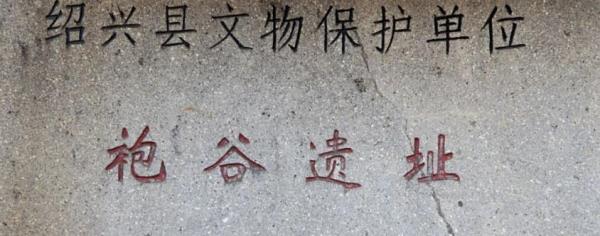 绍兴县文物保护单位
袍谷遗址